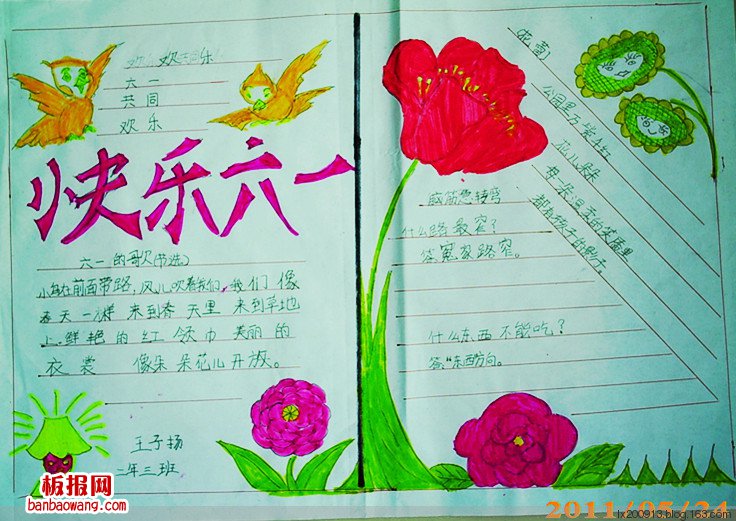 欢欢乐乐
六一
共同
欢乐
快乐六一
六一的歌(节选)
小鸟在前面带路,风儿吹着我们,我们像
春天一样 来到春天里 来到草地
上.鲜艳的红领巾 美丽的
衣裳 像朵朵花儿开放。
王子扬
二年三班
花蕾
公园里万紫千红
花儿朵朵
每朵温柔的笑脸里
都有孩子的影子。
脑筋急转弯
什么路最窄?
答冤家路窄。
什么东西不能吃?
答"东西方向。
板报网
banbaowang.com
2011/05/24
lx200913.blog.163.com